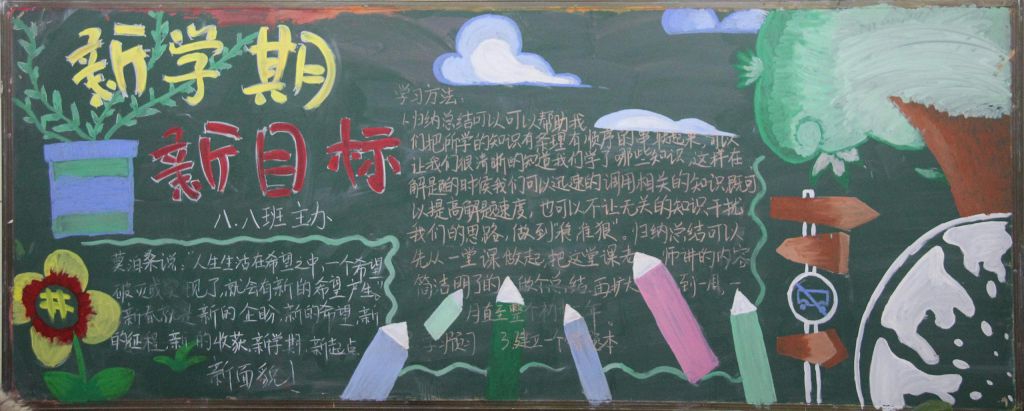 新学期
新目标
八.八班 主办
莫泊桑说："人生生活在希望之中,一个希望
破灭或实现了,就会有新的希望产生。
新春似是新的企盼,新的希望,新
的征程,新的收获,新学期,新起点
新面貌!
学习方法:
1.归纳总结可以可以帮助我
们把所学的知识有条理有顺序的串联起来,可以
让我们很清晰的知道我们学了哪些知识,这样在
解题的时候我们可以迅速的调用相关的知识,既可
以提高解题速度,也可以不让无关的知识干扰
我们的思路,做到准准狠。归纳总结可以
先从一堂课做起,把这堂课老师讲的内容
简洁明了的做个总结,再扩大到一周,一
月直至整个
学期
建立一个本